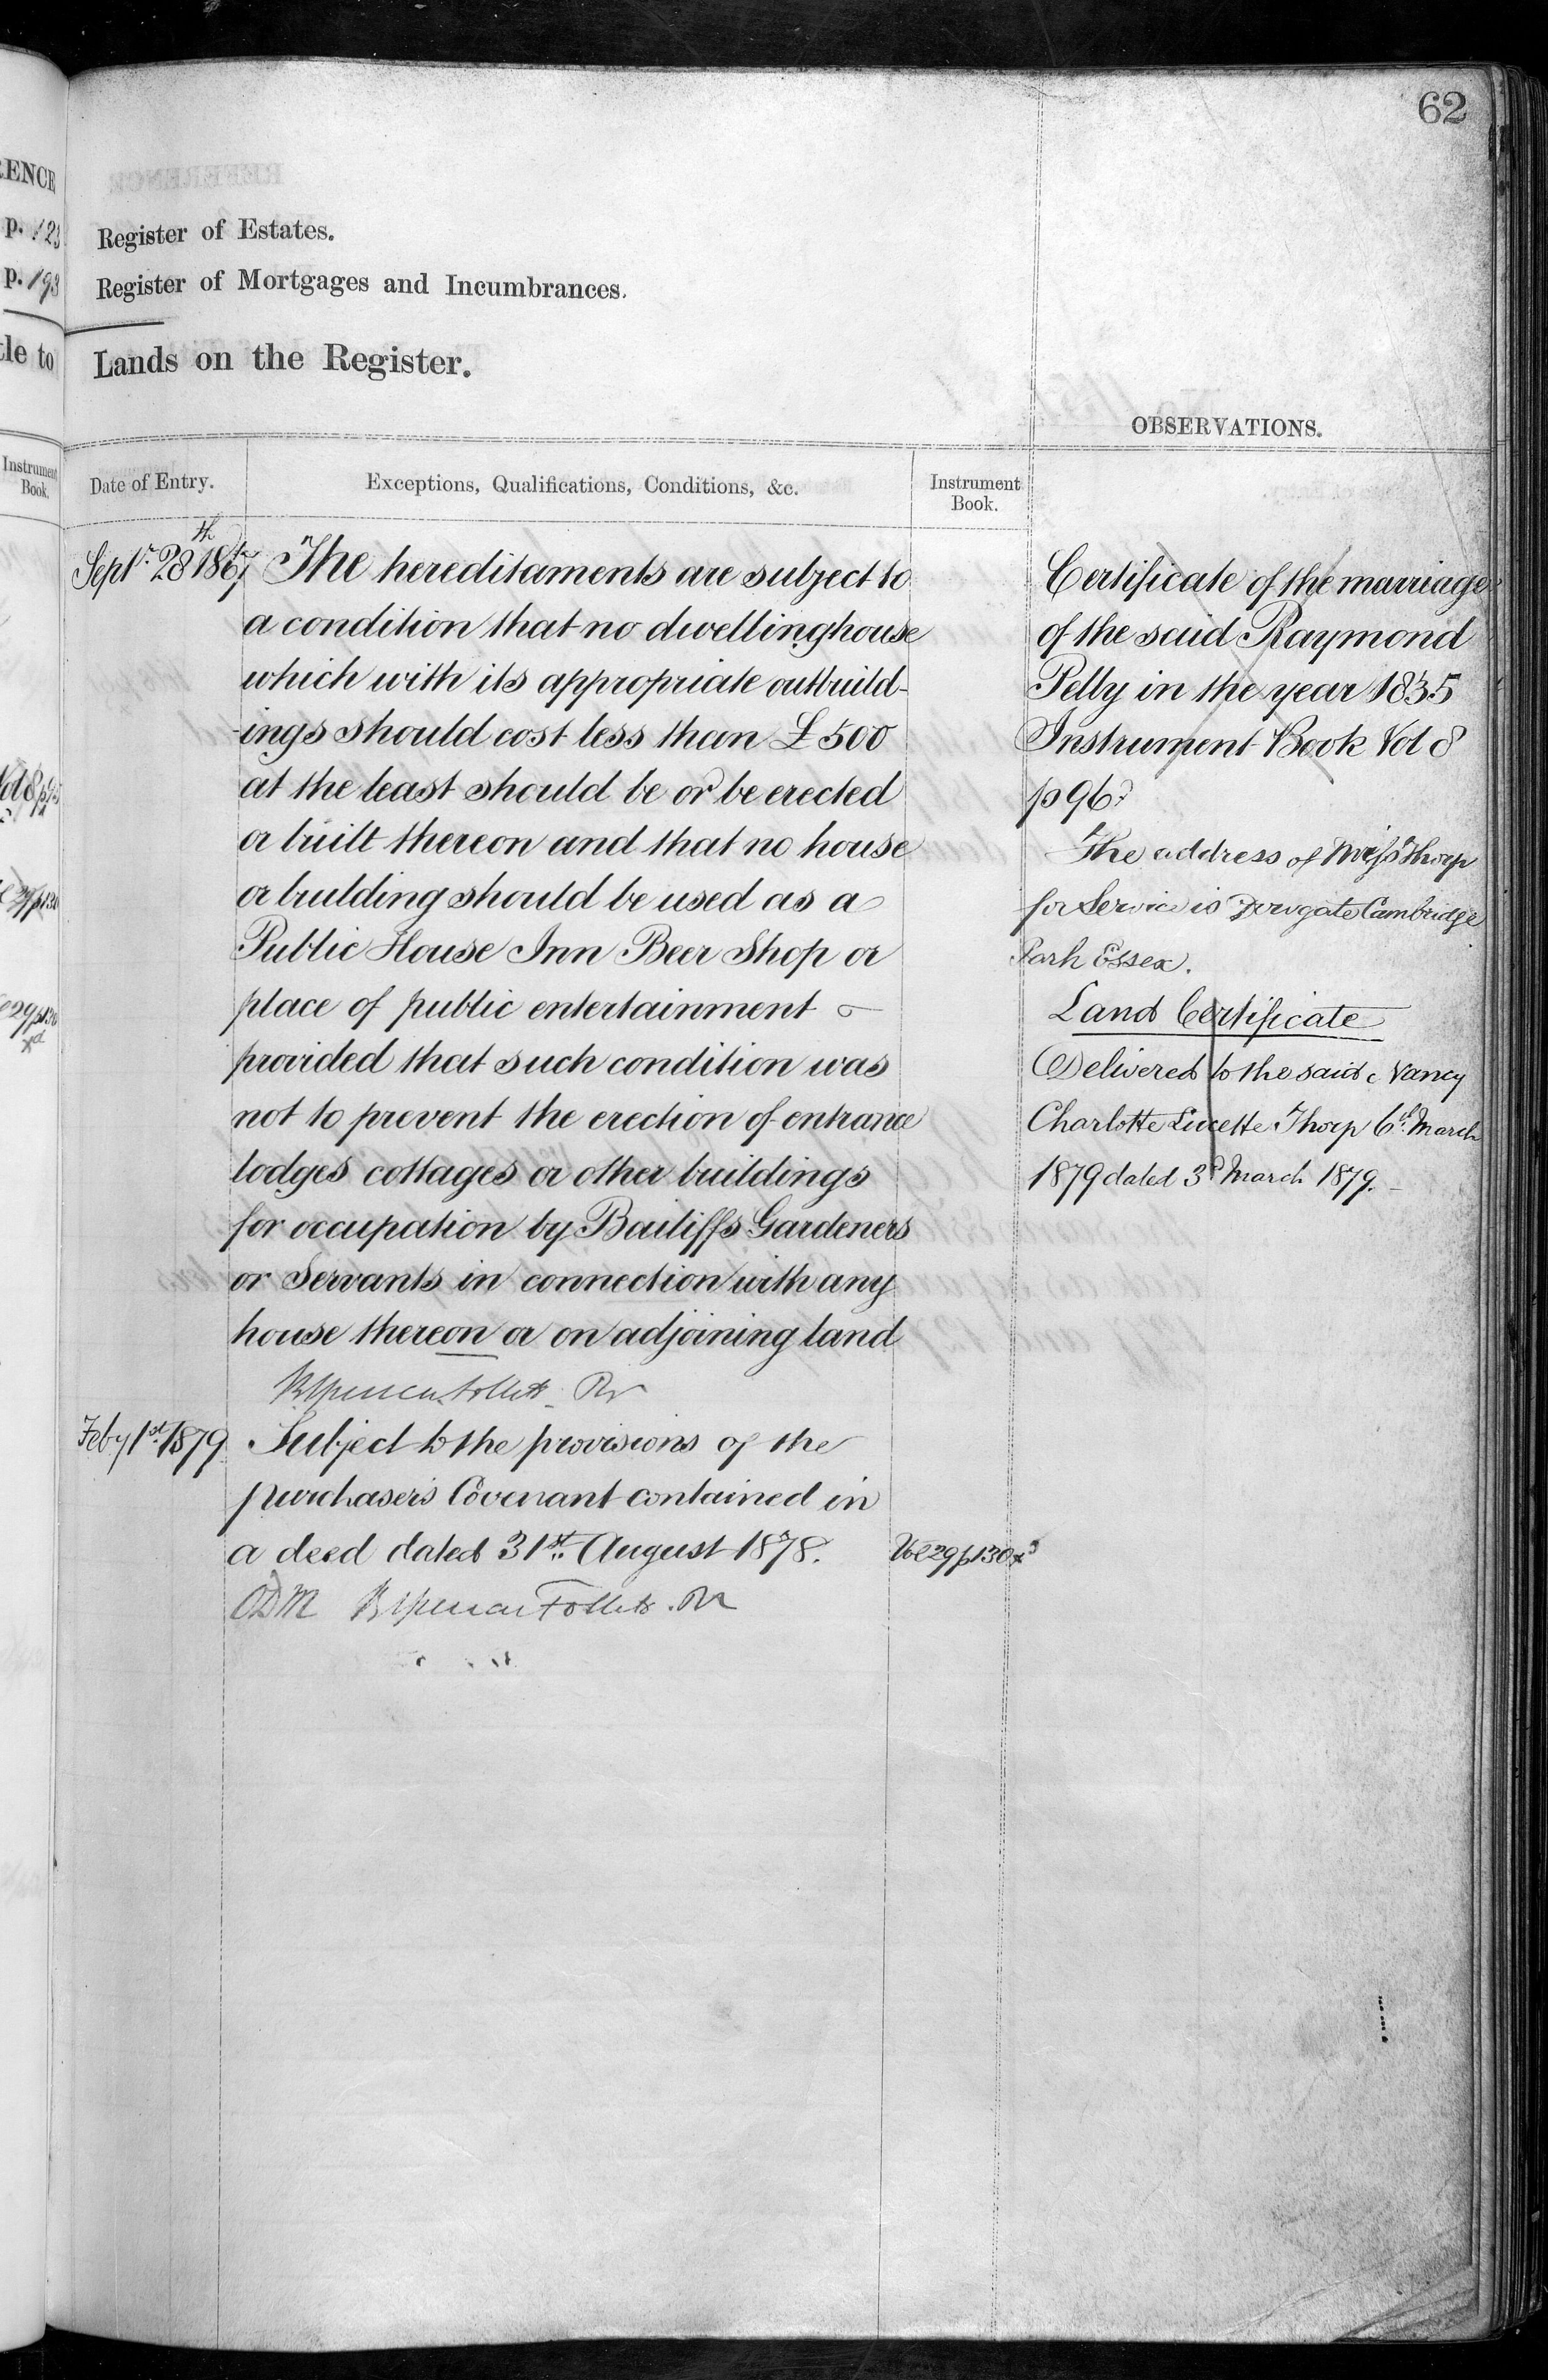 62
RENCE
p. 123
p. 193
tle to
Instrument
Book.
Register of Estates.
Register of Mortgages and Incumbrances.
Lands on the Register.
OBSERVATIONS.
Date of Entry.
Exceptions, Qualifications, Conditions, &c.
Instrument
Book.
Septr. 28th 1867
The hereditaments are subject to
a condition that no dwellinghouse
which with its appropriate outbuild-
-ings should cost less than £500
at the least should be or be erected
or built thereon and that no house
or building should be used as a
Public House Inn Beer Shop or
place of public entertainment
provided that such condition was
not to prevent the erection of entrance
lodges cottages or other buildings
for occupation by Bailiffs Gardeners
or Servants in connection with any
house thereon or on adjoining land
Follett Rr
Feby 1st 1879
Subject to the provisions of the
purchasers Covenant contained in
a deed dated 31st August 1878.
Vol 29 p 130
Follett. Rr
Certificate of the marriage
of the said Raymond
Pelly in the year 1835
Instrument Book Vol 8
p 96
The address of Miss Thorp
for Service is Cambridge
Park Essex.
Land Certificate
Delivered to the said Nancy
Charlotte Lucette Thorp 6th March
1879 dated 3d March 1879.